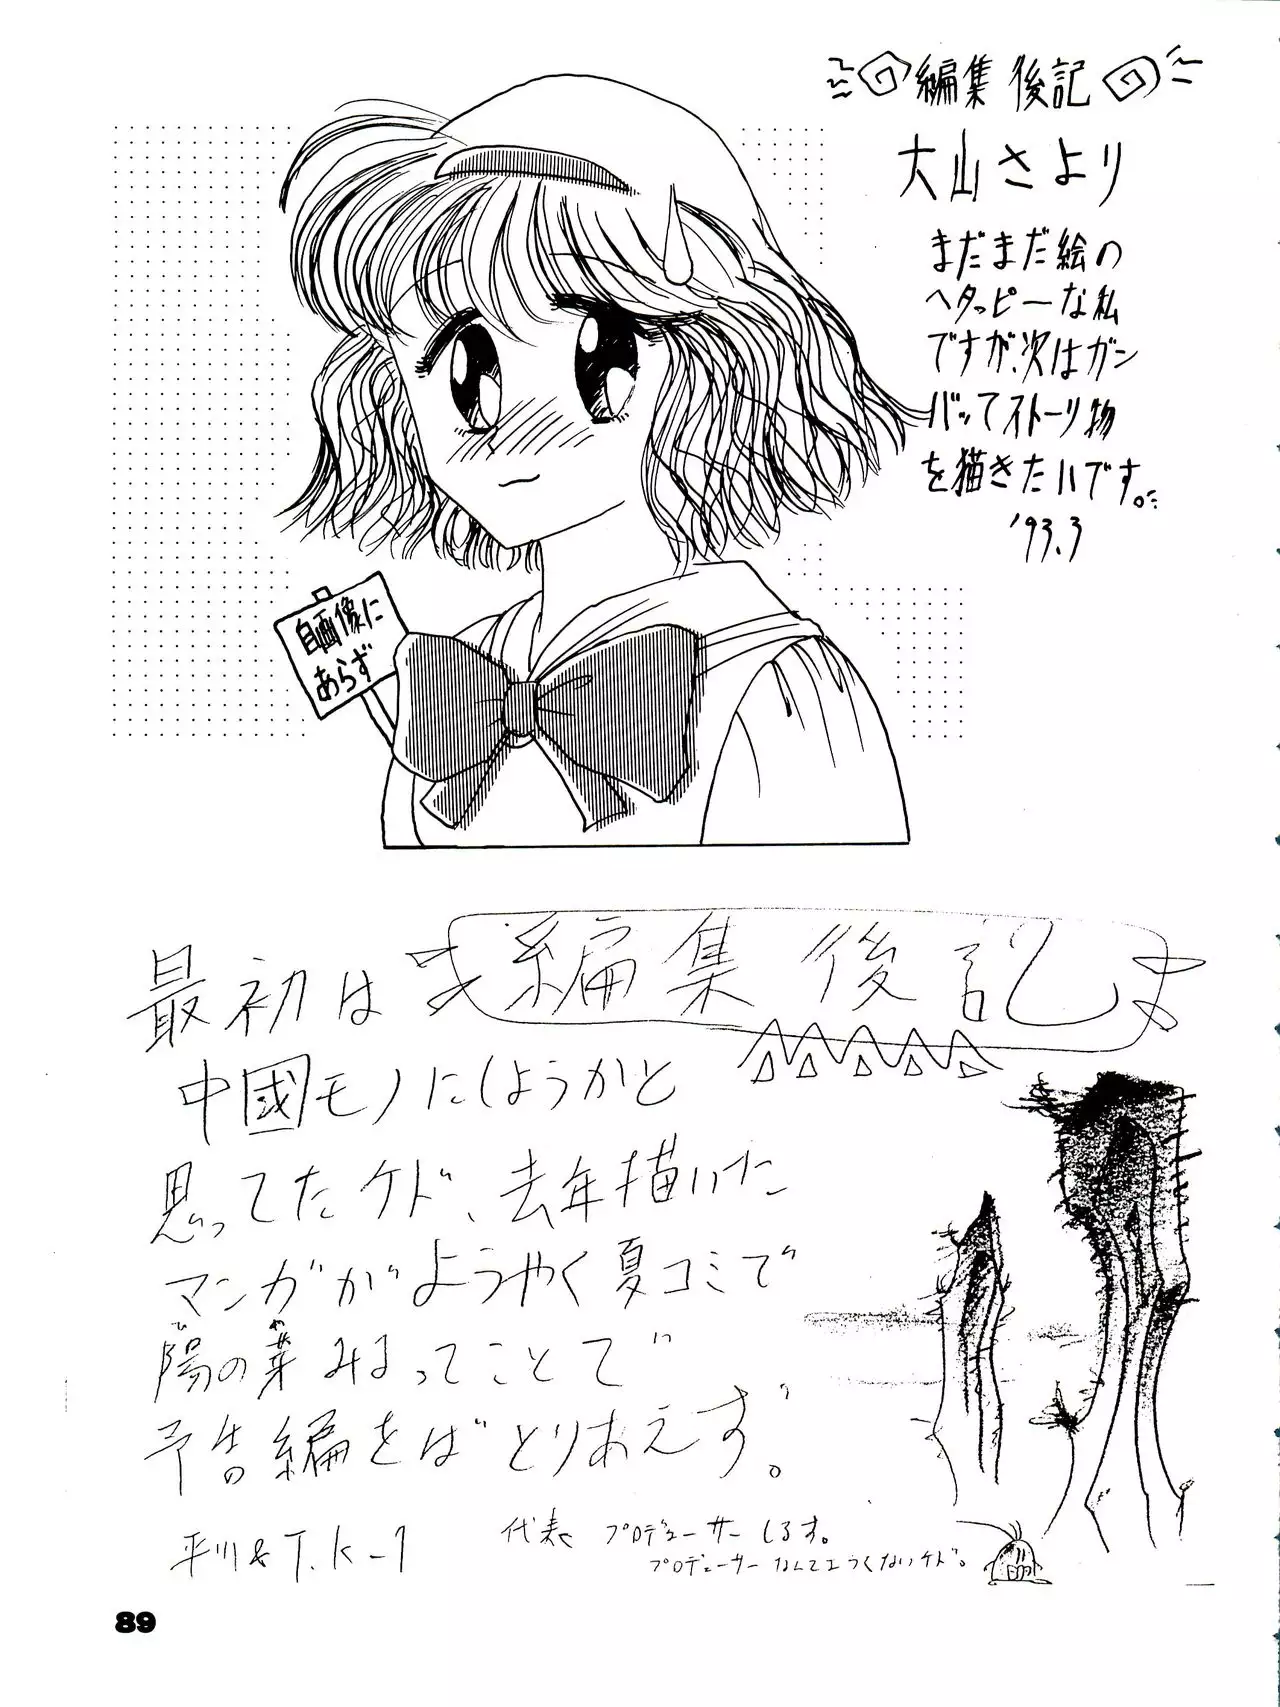 編集後記
大山さより
まだまだ絵の
ヘタッピーな私
ですが、次はガン
バッてストーリ物
を描きたいです。
'93.3
自画像に
あらず
編集後記
最初は
中國モノにしようかと
思ってたケド、去年描いた
マンガがようやく夏コミで
陽の芽みるってことで
ひ め
予告編をばとりあえず。
平川&T.K-1
代表 プロデューサーしるす。
プロデューサーなんてエラくないケド。
89